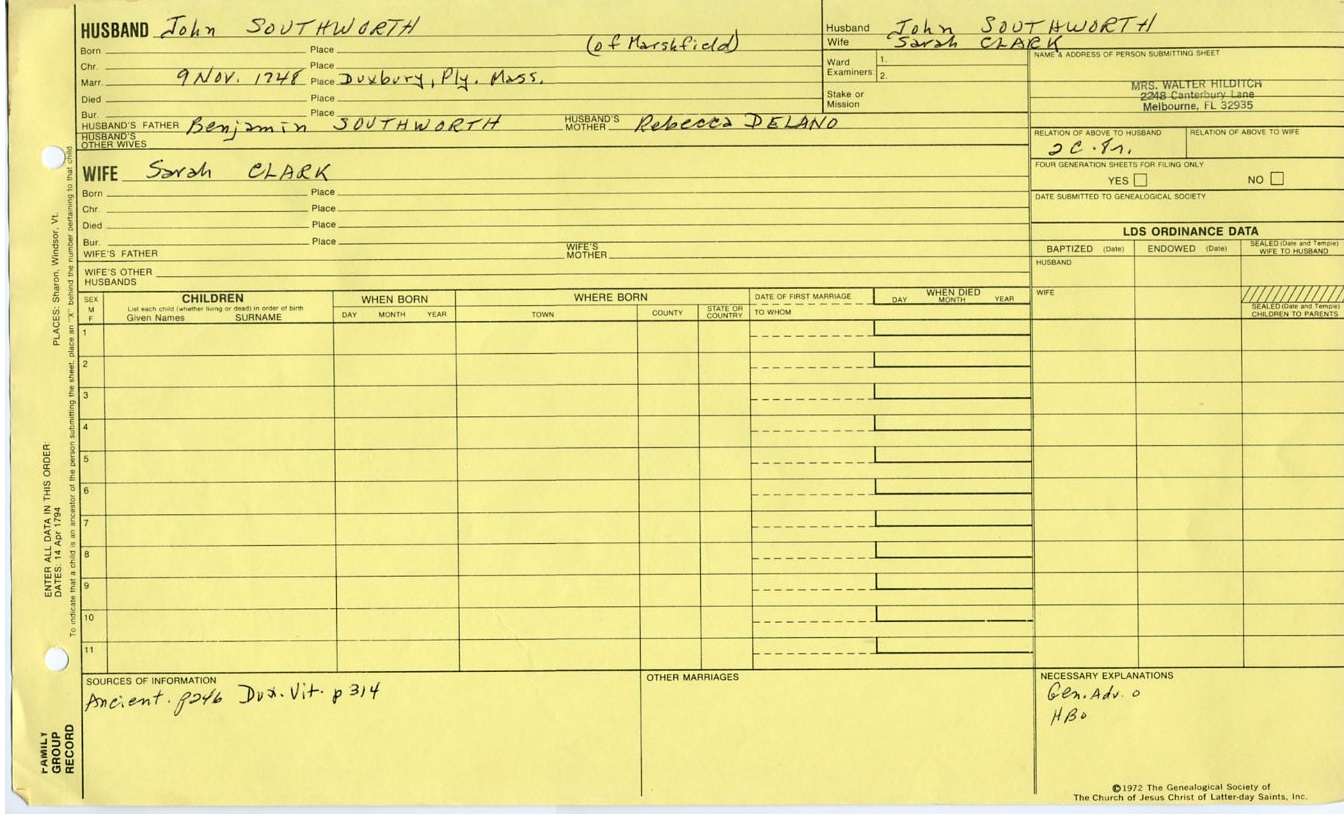 HUSBAND John SOUTHWORTH
Born Place (of Marshfield)
Chr. Place
Marr. 9 Nov. 1748 Place Duxbury, Ply. Mass.
Died Place
Bur. Place
HUSBAND'S FATHER Benjamin SOUTHWORTH HUSBAND'S MOTHER Rebecca DELANO
HUSBAND'S OTHER WIVES
Husband John SOUTHWORTH
Wife Sarah CLARK
Ward Examiners 1.
2.
Stake or Mission
NAME & ADDRESS OF PERSON SUBMITTING SHEET
MRS. WALTER HILDITCH
2248 Canterbury Lane
Melbourne, FL 32935
RELATION OF ABOVE TO HUSBAND RELATION OF ABOVE TO WIFE
FOUR GENERATION SHEETS FOR FILING ONLY
YES NO
DATE SUBMITTED TO GENEALOGICAL SOCIETY
WIFE Sarah CLARK
Born Place
Chr. Place
Died Place
Bur. Place
WIFE'S FATHER WIFE'S MOTHER
WIFE'S OTHER HUSBANDS
LDS ORDINANCE DATA
BAPTIZED (Date) ENDOWED (Date) SEALED (Date and Temple) WIFE TO HUSBAND
HUSBAND
WIFE
SEALED (Date and Temple) CHILDREN TO PARENTS
SEX M F
CHILDREN
List each child (whether living or dead) in order of birth
Given Names SURNAME
WHEN BORN
DAY MONTH YEAR
WHERE BORN
TOWN COUNTY STATE OR COUNTRY
DATE OF FIRST MARRIAGE
TO WHOM
WHEN DIED
DAY MONTH YEAR
1
2
3
4
5
6
7
8
9
10
11
SOURCES OF INFORMATION
Ancient. p246 Dux. Vit. p 314
OTHER MARRIAGES
NECESSARY EXPLANATIONS
Gen. Adv. o
HBo
©1972 The Genealogical Society of
The Church of Jesus Christ of Latter-day Saints, Inc.
PLACES: Sharon, Windsor, Vt.
ENTER ALL DATA IN THIS ORDER:
DATES: 14 Apr 1794
To indicate that a child is an ancestor of the person submitting the sheet, place an "X" behind the number pertaining to that child.
FAMILY
GROUP
RECORD